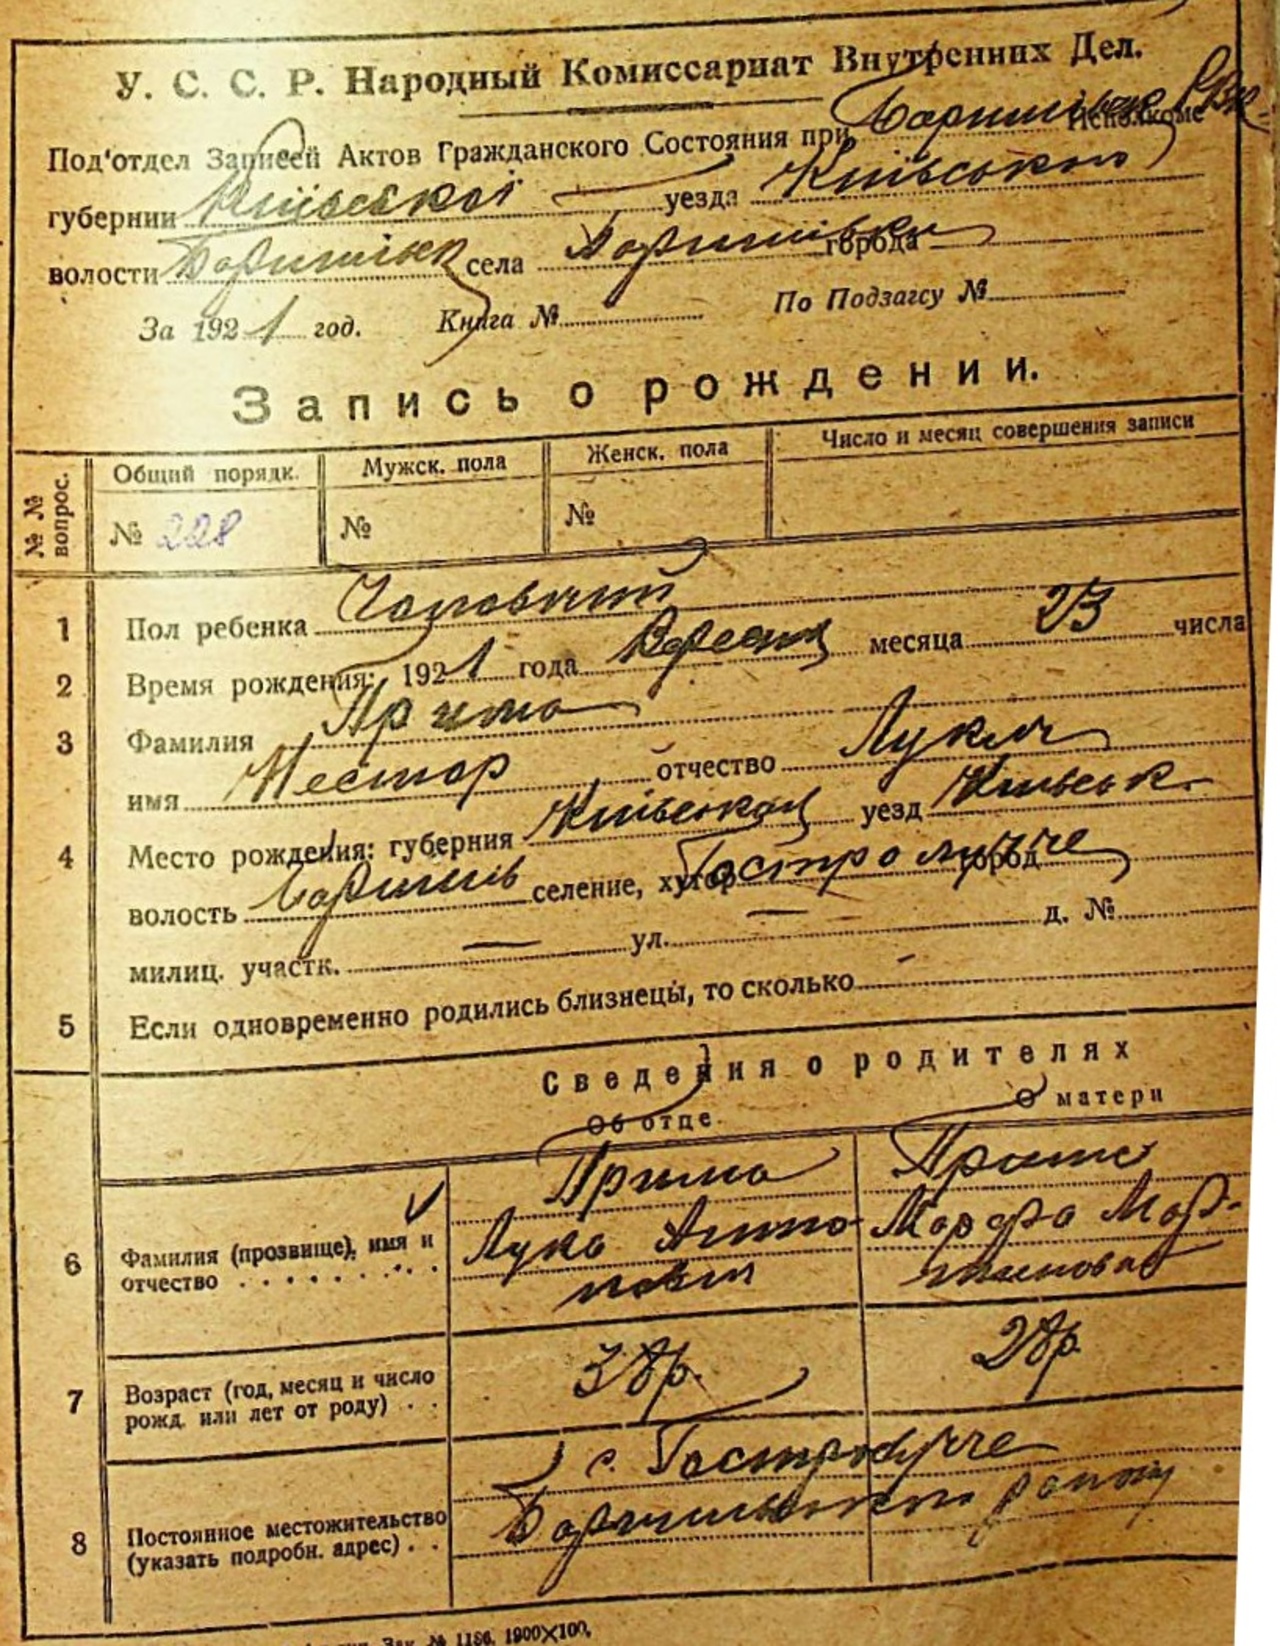 У. С. С. Р. Народный Комиссариат Внутренних Дел.
Под'отдел Записей Актов Гражданского Состояния при Исполкоме
губернии Київської уезда Київського
волости села Баришівки города
За 1921 год. Книга № По Подзагсу №
Запись о рождении.
№ № вопрос. Общий порядк. Мужск. пола Женск. пола Число и месяц совершения записи
№ 228 № №
1 Пол ребенка Чоловічий
2 Время рождения: 1921 года месяца 23 числа
3 Фамилия Прима
имя Нестор отчество Луки
4 Место рождения: губерния уезд Київськ.
волость Баришів селение, хутор город
милиц. участк. — ул. — д. №
5 Если одновременно родились близнецы, то сколько -
Сведения о родителях
Об отце. О матери
6 Фамилия (прозвище), имя и отчество Прима Лука Прима
7 Возраст (год, месяц и число рожд. или лет от роду) 38р. 28р.
8 Постоянное местожительство (указать подробн. адрес) с. району
Зак. № 1186. 1900×100.